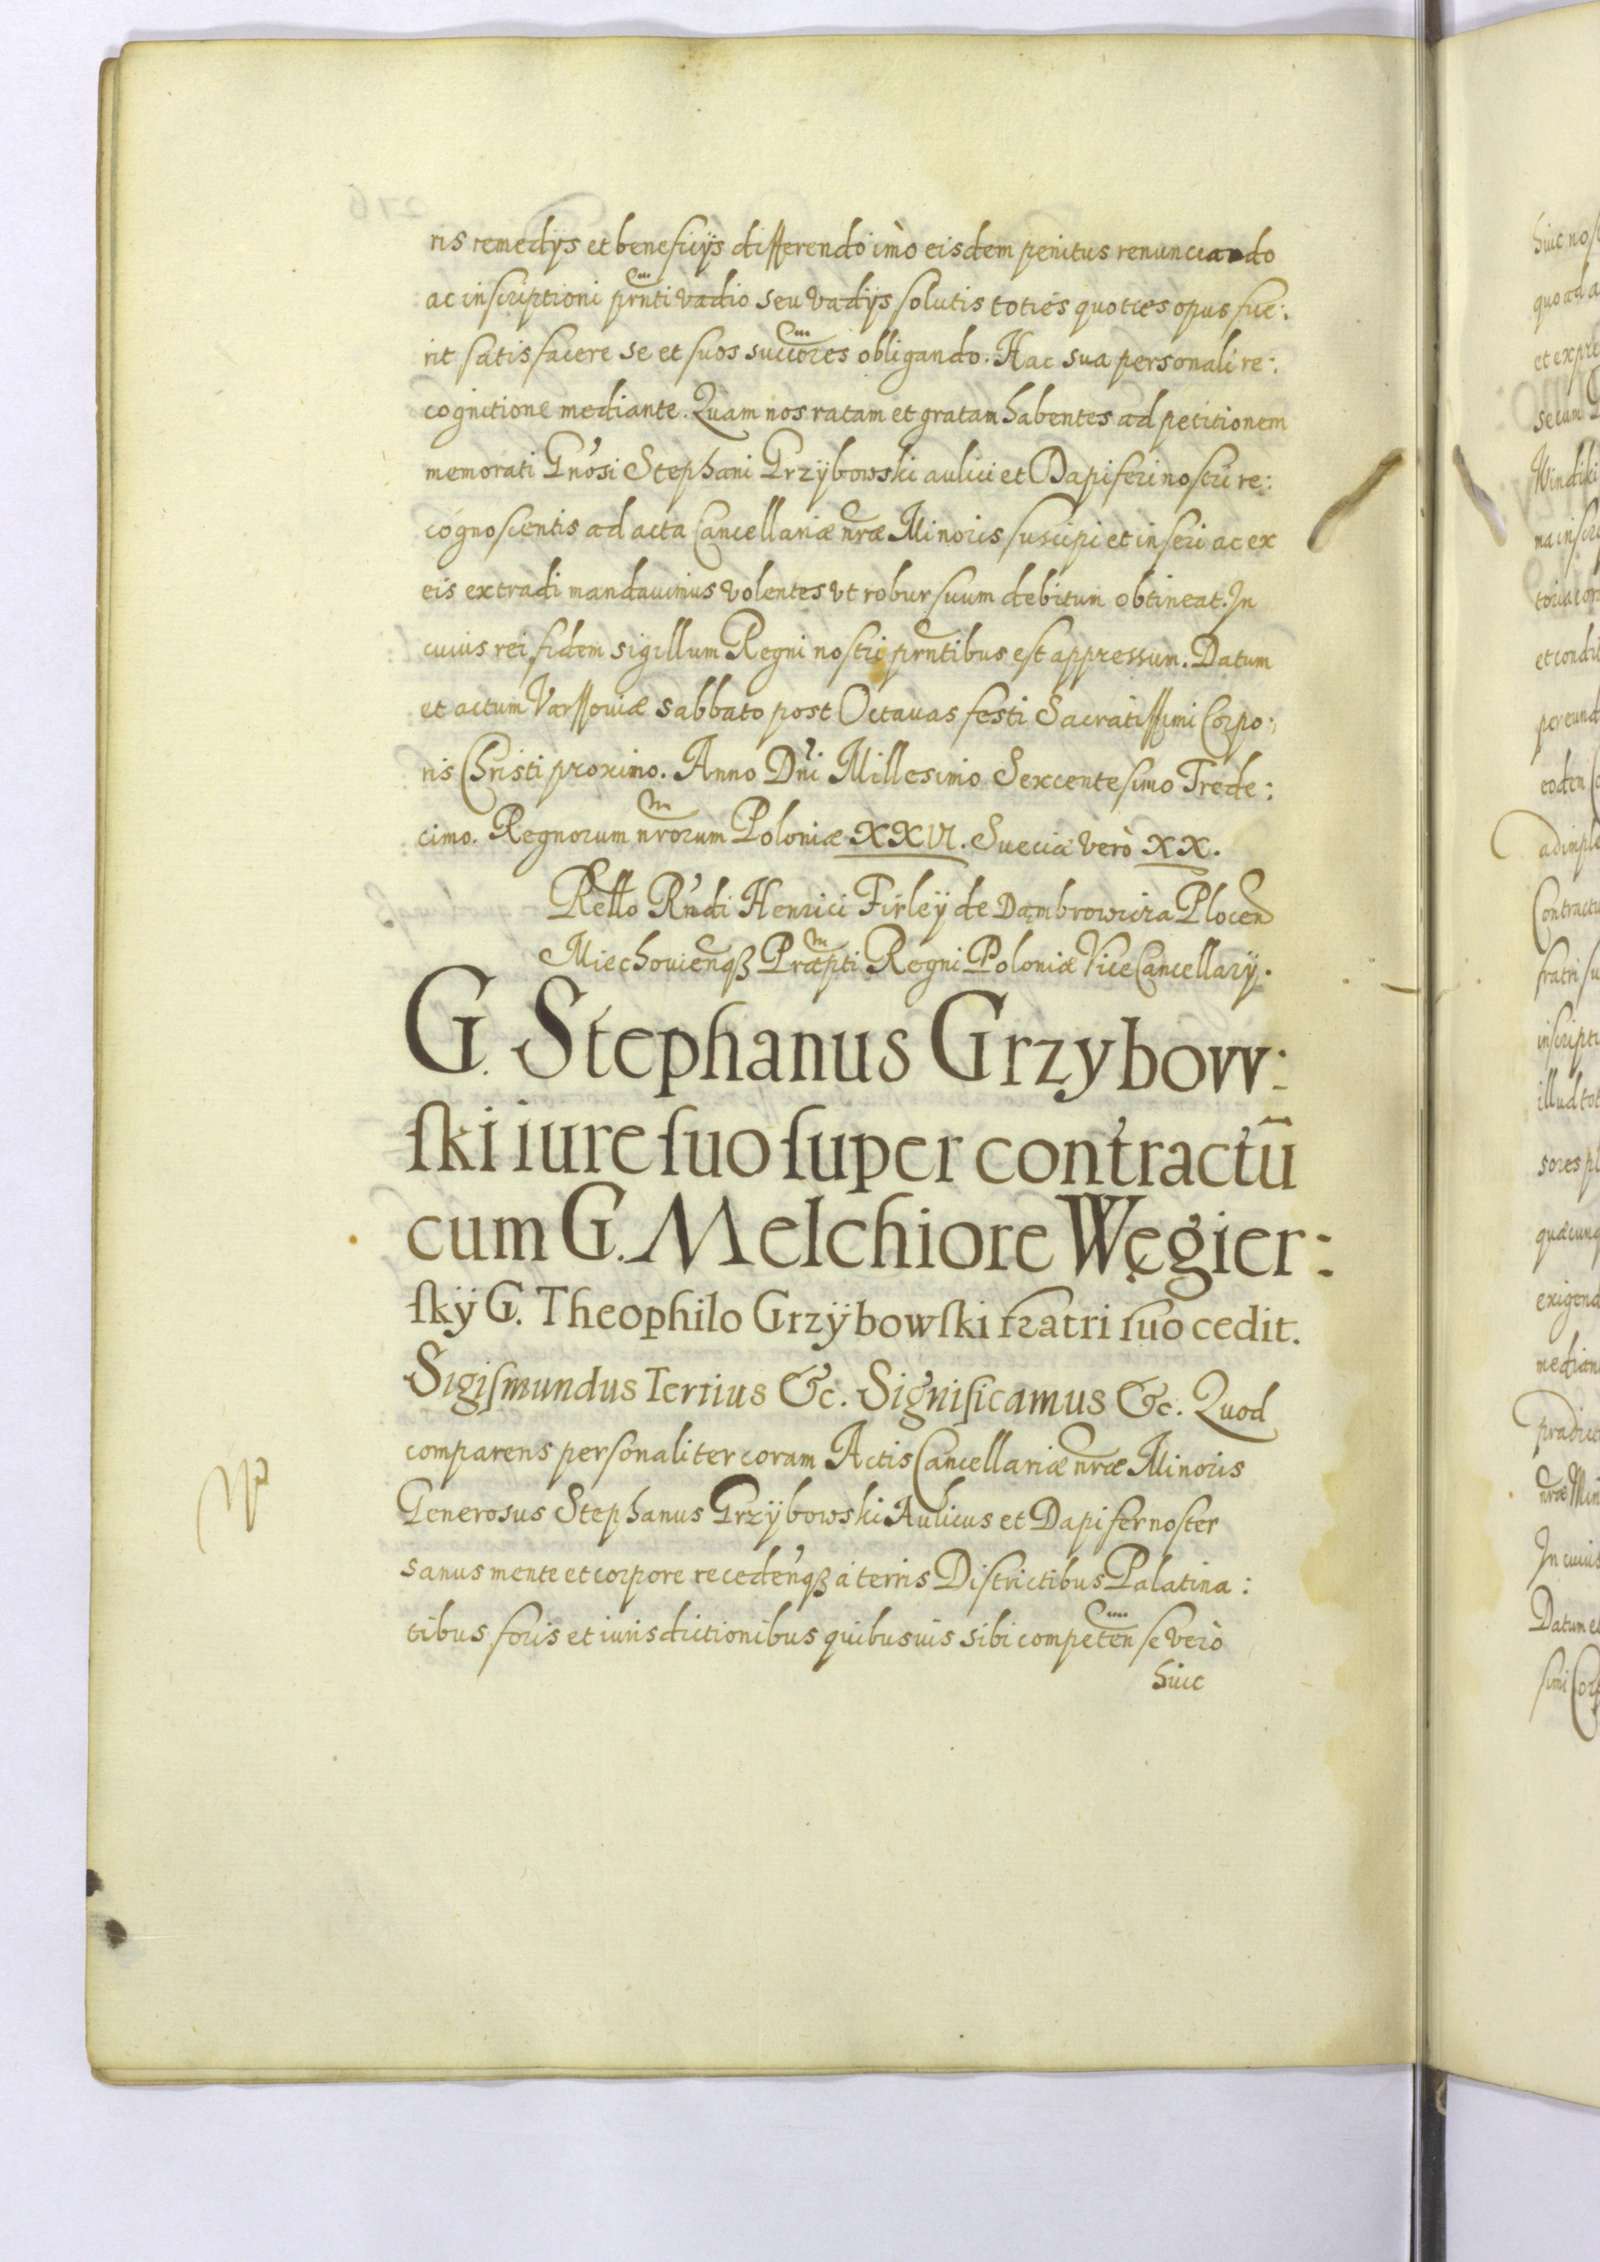 ris remedijs et beneficijs differendo imò eisdem penitus renunciando
ac inscriptioni prnti vadio seu vadijs solutis toties quoties opus fue:
rit satisfacere se et suos succores obligando. Hac sua personali re:
cognitione mediante. Quam nos ratam et gratam habentes ad petitionem
memorati Gnosi Stephani Grzÿbowski aulici et Dapiferi nostri re:
cognoscentis ad acta Cancellariæ nræ Minoris suscipi et inseri ac ex
eis extradi mandauimus volentes vt robur suum debitum obtineat. In
cuius rei fidem sigillum Regni nostri prntibus est appressum. Datum
et actum Varssouiæ sabbato post Octauas festi Sacratissimi Corpo:
ris Christi proximo. Anno Dni Millesimo Sexcentesimo Trede:
cimo. Regnorum nrorum Poloniæ XXVI. Sueciæ verò XX.
Retto Rndi Henrici Firleÿ de Dambrowicza Plocen
Miechouienqȝ Præpti Regni Poloniæ ViceCancellarÿ.
G. Stephanus Grzybow:
ſki iure ſuo ſuper contractū
cum G. Melchiore Węgier:
ſkÿ G. Theophilo Grzÿbowſki fratri ſuo cedit.
Sigiſmundus Tertius &c. Significamus &c. Quod
comparens personaliter coram Actis Cancellariæ nræ Minoris
Generosus Stephanus Grzÿbowski Aulicus et Dapifer noster
sanus mente et corpore recedenqȝ à terris Districtibus Palatina:
tibus foris et iurisdictionibus quibusuis sibi competen se verò
huic
huic nos
quo ad a
et expre
se cum
Windiki
ma inscri
toria cor
et condit
per eund
eoden
adimple
Contractu
fratri su
inscripti
illud tot
sores pl
quæcunq
exigend
median
prædict
nræ Min
In cuius
Datum et
simi Cor